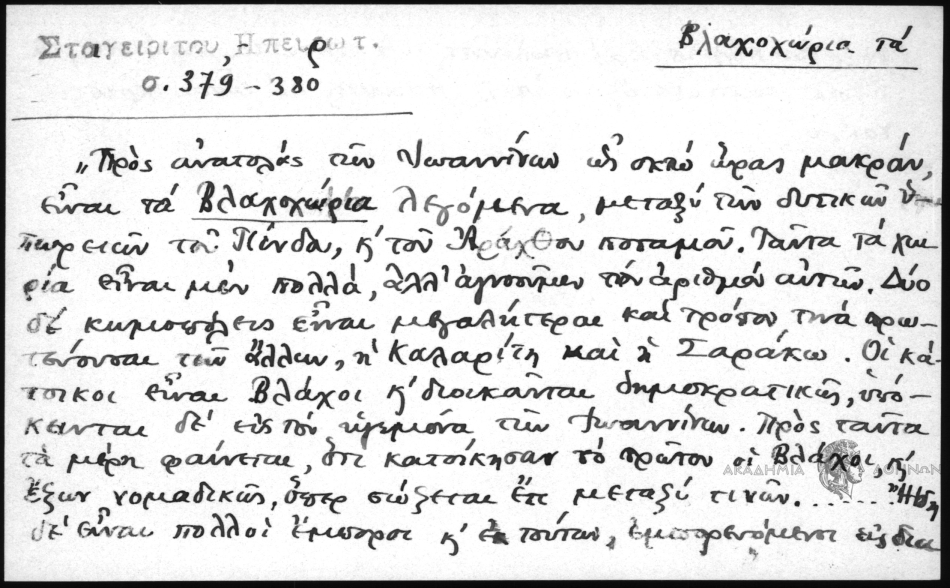 Σταγειρίτου, Ηπειρωτ.
Βλαχοχώρια τά
σ. 379 - 380
„Πρὸς ἀνατολάς τῶν Ἰωαννίνων ὡς ὀκτώ ὥρας μακράν,
εἶναι τά Βλαχοχώρια λεγόμενα, μεταξύ τῶν δυτικῶν ὑ-
πωρειῶν τοῦ Πίνδα, κ' τοῦ Ἀράχθου ποταμοῦ. Ταῦτα τά χω-
ρία εἶναι μέν πολλά, ἀλλ' ἀγνοοῦμεν τόν ἀριθμόν αὐτῶν. Δύο
δέ κωμοπόλεις εἶναι μεγαλήτεραι καί τρόπον τινά πρω-
τεύουσαι τῶν ἄλλων, ἡ Καλαρίτη καί ἡ Σαράκω. Οἱ κά-
τοικοι εἶναι Βλάχοι κ' διοικοῦνται δημοκρατικῶς, ὑπό-
κεινται δέ εἰς τόν ἡγεμόνα τῶν Ἰωαννίνων. Πρὸς ταῦτα
τὰ μέρη φαίνεται, ὅτι κατοίκησαν τὸ πρῶτον οἱ Βλάχοι, κ'
ἔζων νομαδικῶς, ὅπερ σώζεται ἔτι μεταξύ τινῶν. ....... Ἤδη
δέ εἶναι πολλοὶ ἔμποροι κ' ἐκ τούτων, ἐμπορευόμενοι εἰς δια
ΑΚΑΔΗΜΙΑ ΑΘΗΝΩΝ